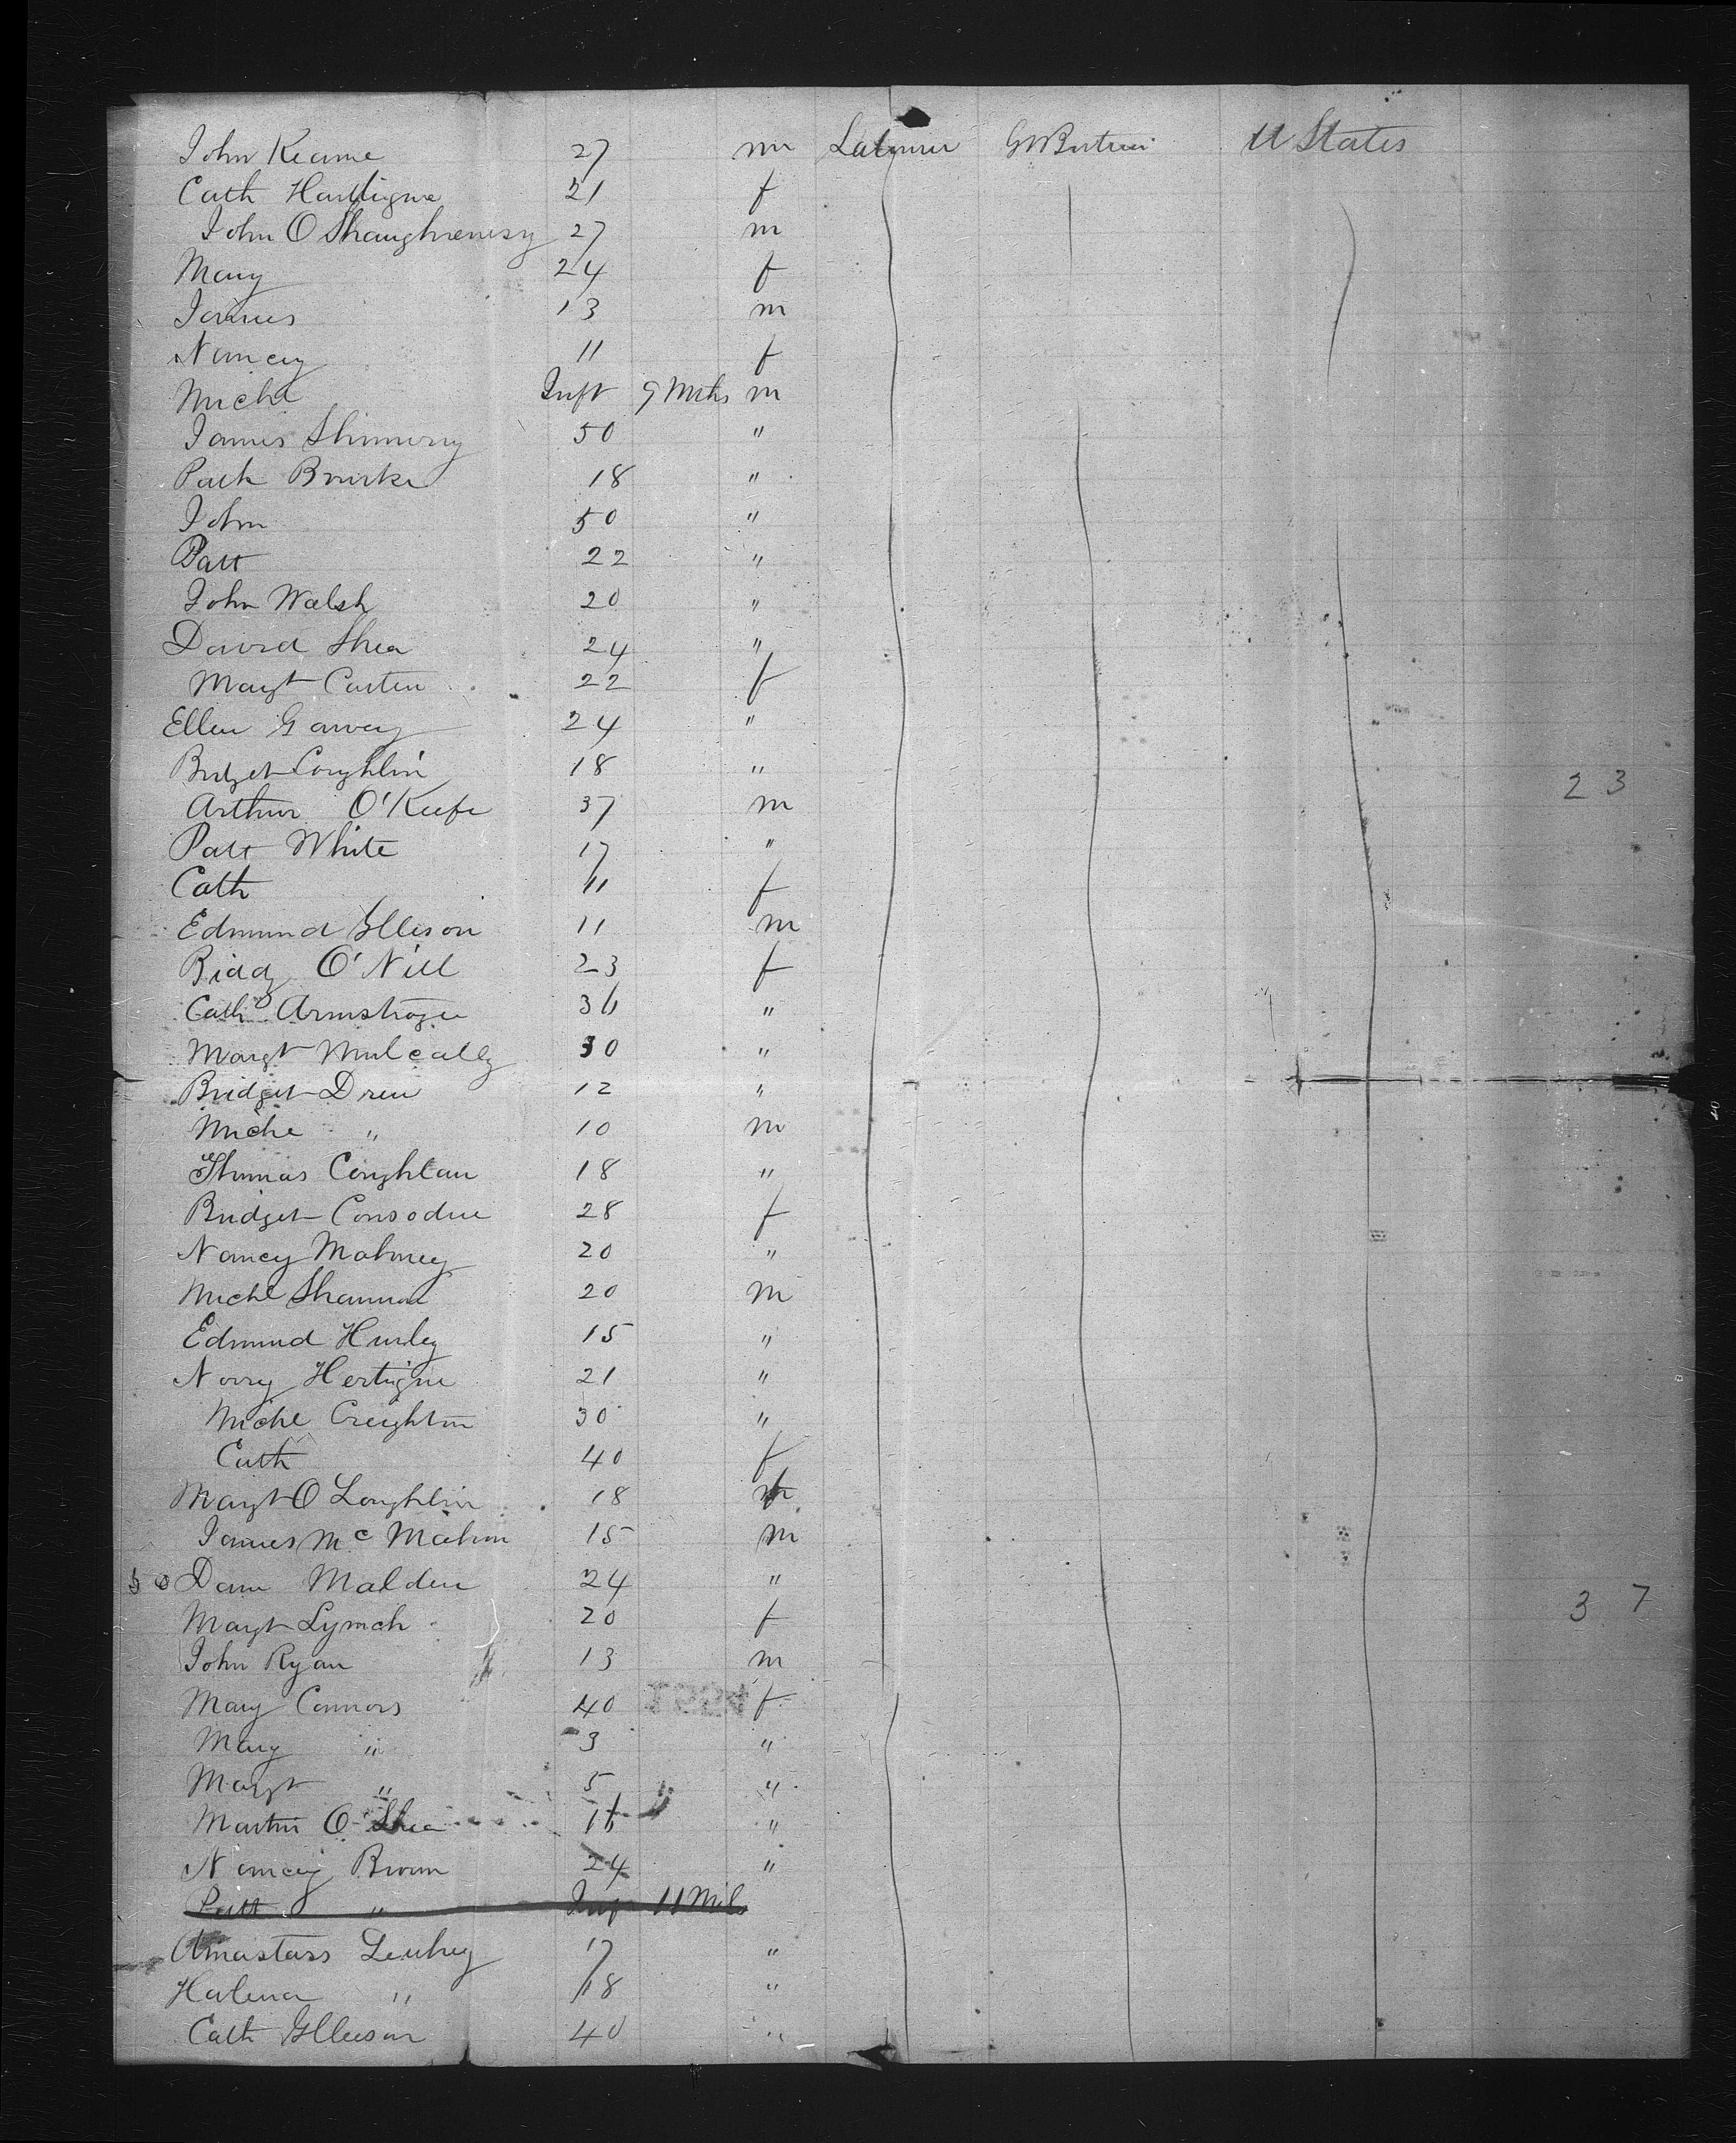 John Keame 27 m Labourer Gt Britain U States
Cath Hartigne 21 f
John O Shaughnensy 27 m
Mary 24 f
James 13 m
Nancy 11 f
Michl Inft 9 Mths m
James Shinnery 50 "
Patk Bourke 18 "
John 50 "
Patt 22 "
John Walsh 20 "
David Shea 24 "
Margt Carten 22 f
Ellen Garvey 24 "
Bridget Coughlin 18 "
Arthur O'Keefe 37 m 23
Patt White 17 "
Cath 11 f
Edmund Glleson 11 m
Biddy O'Nill 23 f
Cath Armstroge 36 "
Margt Mulcally 30 "
Bridget Drew 12 "
Michl " 10 m
Thomas Coughlan 18 "
Bridget Consodine 28 f
Nancy Mahoney 20 "
Michl Shannon 20 m
Edmund Hurley 15 "
Norry Hertigne 21 "
Michl Creighton 30 "
Cath 40 f
Margt O Loughlin 18 f
James Mc Mahon 15 m
50 Dam Malden 24 "
Margt Lynch 20 f 37
John Ryan 13 m
Mary Connors 40 f
Mary " 3 "
Margt " 5 "
Martin O Shea 16 "
Nancy Brown 24 "
Patt " Inf 11 Mths
Anastass Leuhey 17 "
Halena " 18 "
Cath Glleeson 40 "